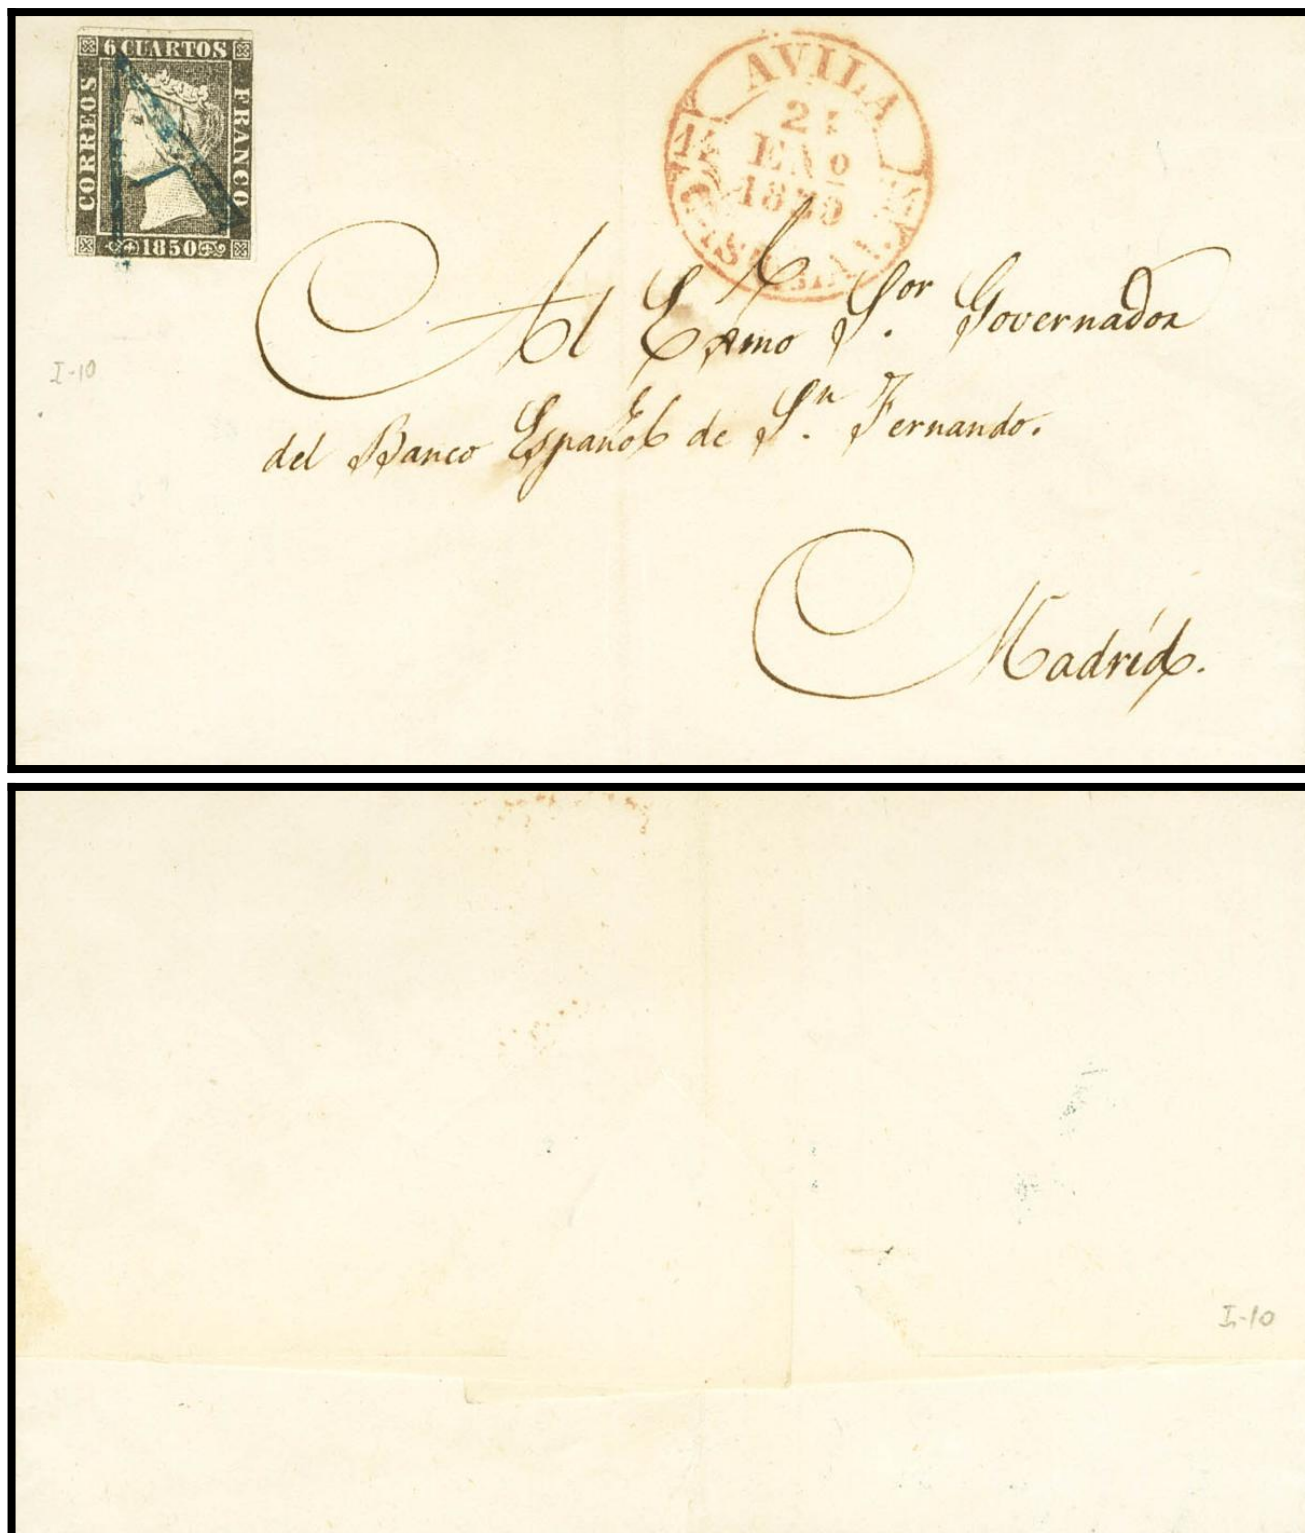 6 CUARTOS
CORREOS
FRANCO
1850
AVILA
ENO
I-10
Al Exmo Sor Governador
del Banco Español de Sn Fernando.
Madrid.
I-10